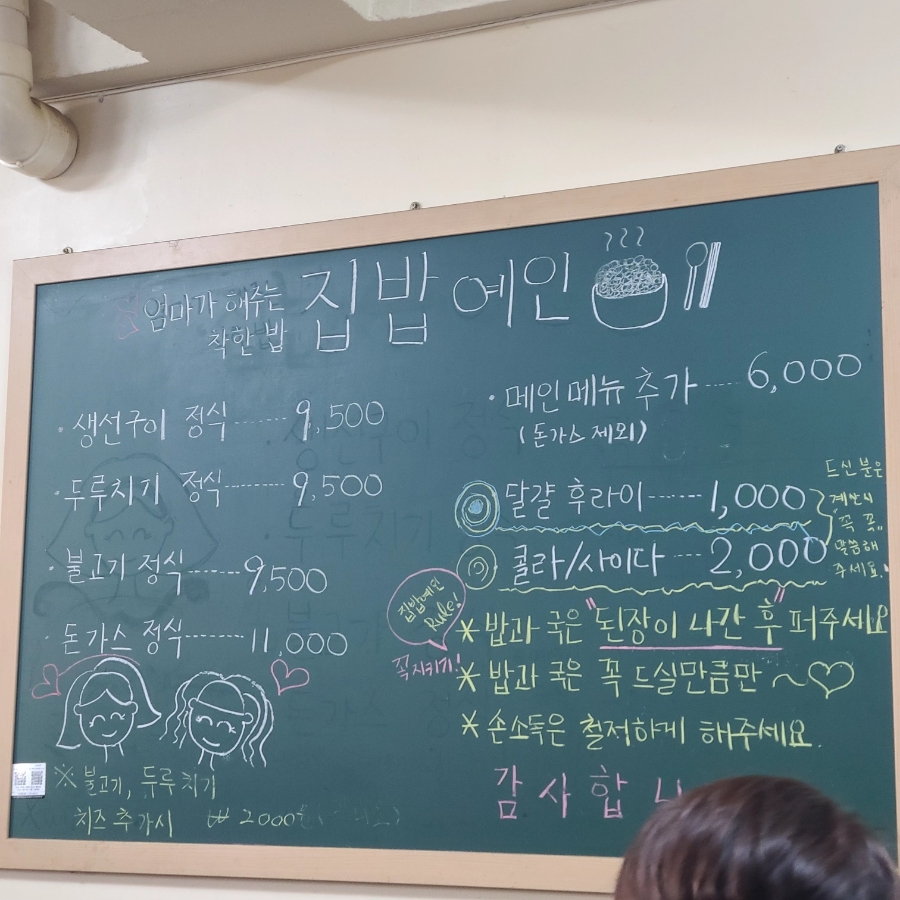 엄마가 해주는
착한 밥
집밥 예인
· 생선구이 정식 ------ 9,500
· 두루치기 정식 ------ 9,500
· 불고기 정식 ------ 9,500
· 돈가스 정식 ------ 11,000
※ 불고기, 두루치기
치즈 추가시 ₩ 2000
· 메인메뉴 추가 ---- 6,000
(돈가스 제외)
달걀 후라이 ------ 1,000
콜라/사이다 ---- 2,000
드신 분은
계산시
"꼭 꼭"
말씀해
주세요.
집밥예인
Rule!
꼭 지키기!
* 밥과 국은 "된장이 나간 후" 퍼주세요
* 밥과 국은 꼭 드실만큼만 ~♡
* 손소독은 철저하게 해주세요.
감사합